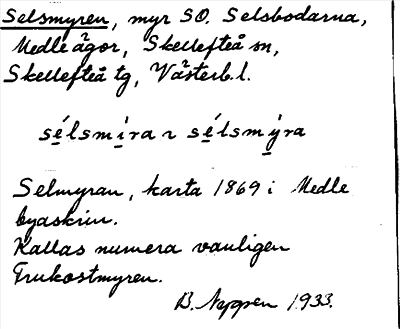 Selsmyren, myr SO. Selsbodarna,
Medle ägor, Skellefteå sn,
Skellefteå tg, Västerb. l.
sélsmira ɿ sélsmýra
Selmyran, karta 1869 i Medle
byaskrin.
Kallas numera vanligen
Frukostmyren.
B. 1933.